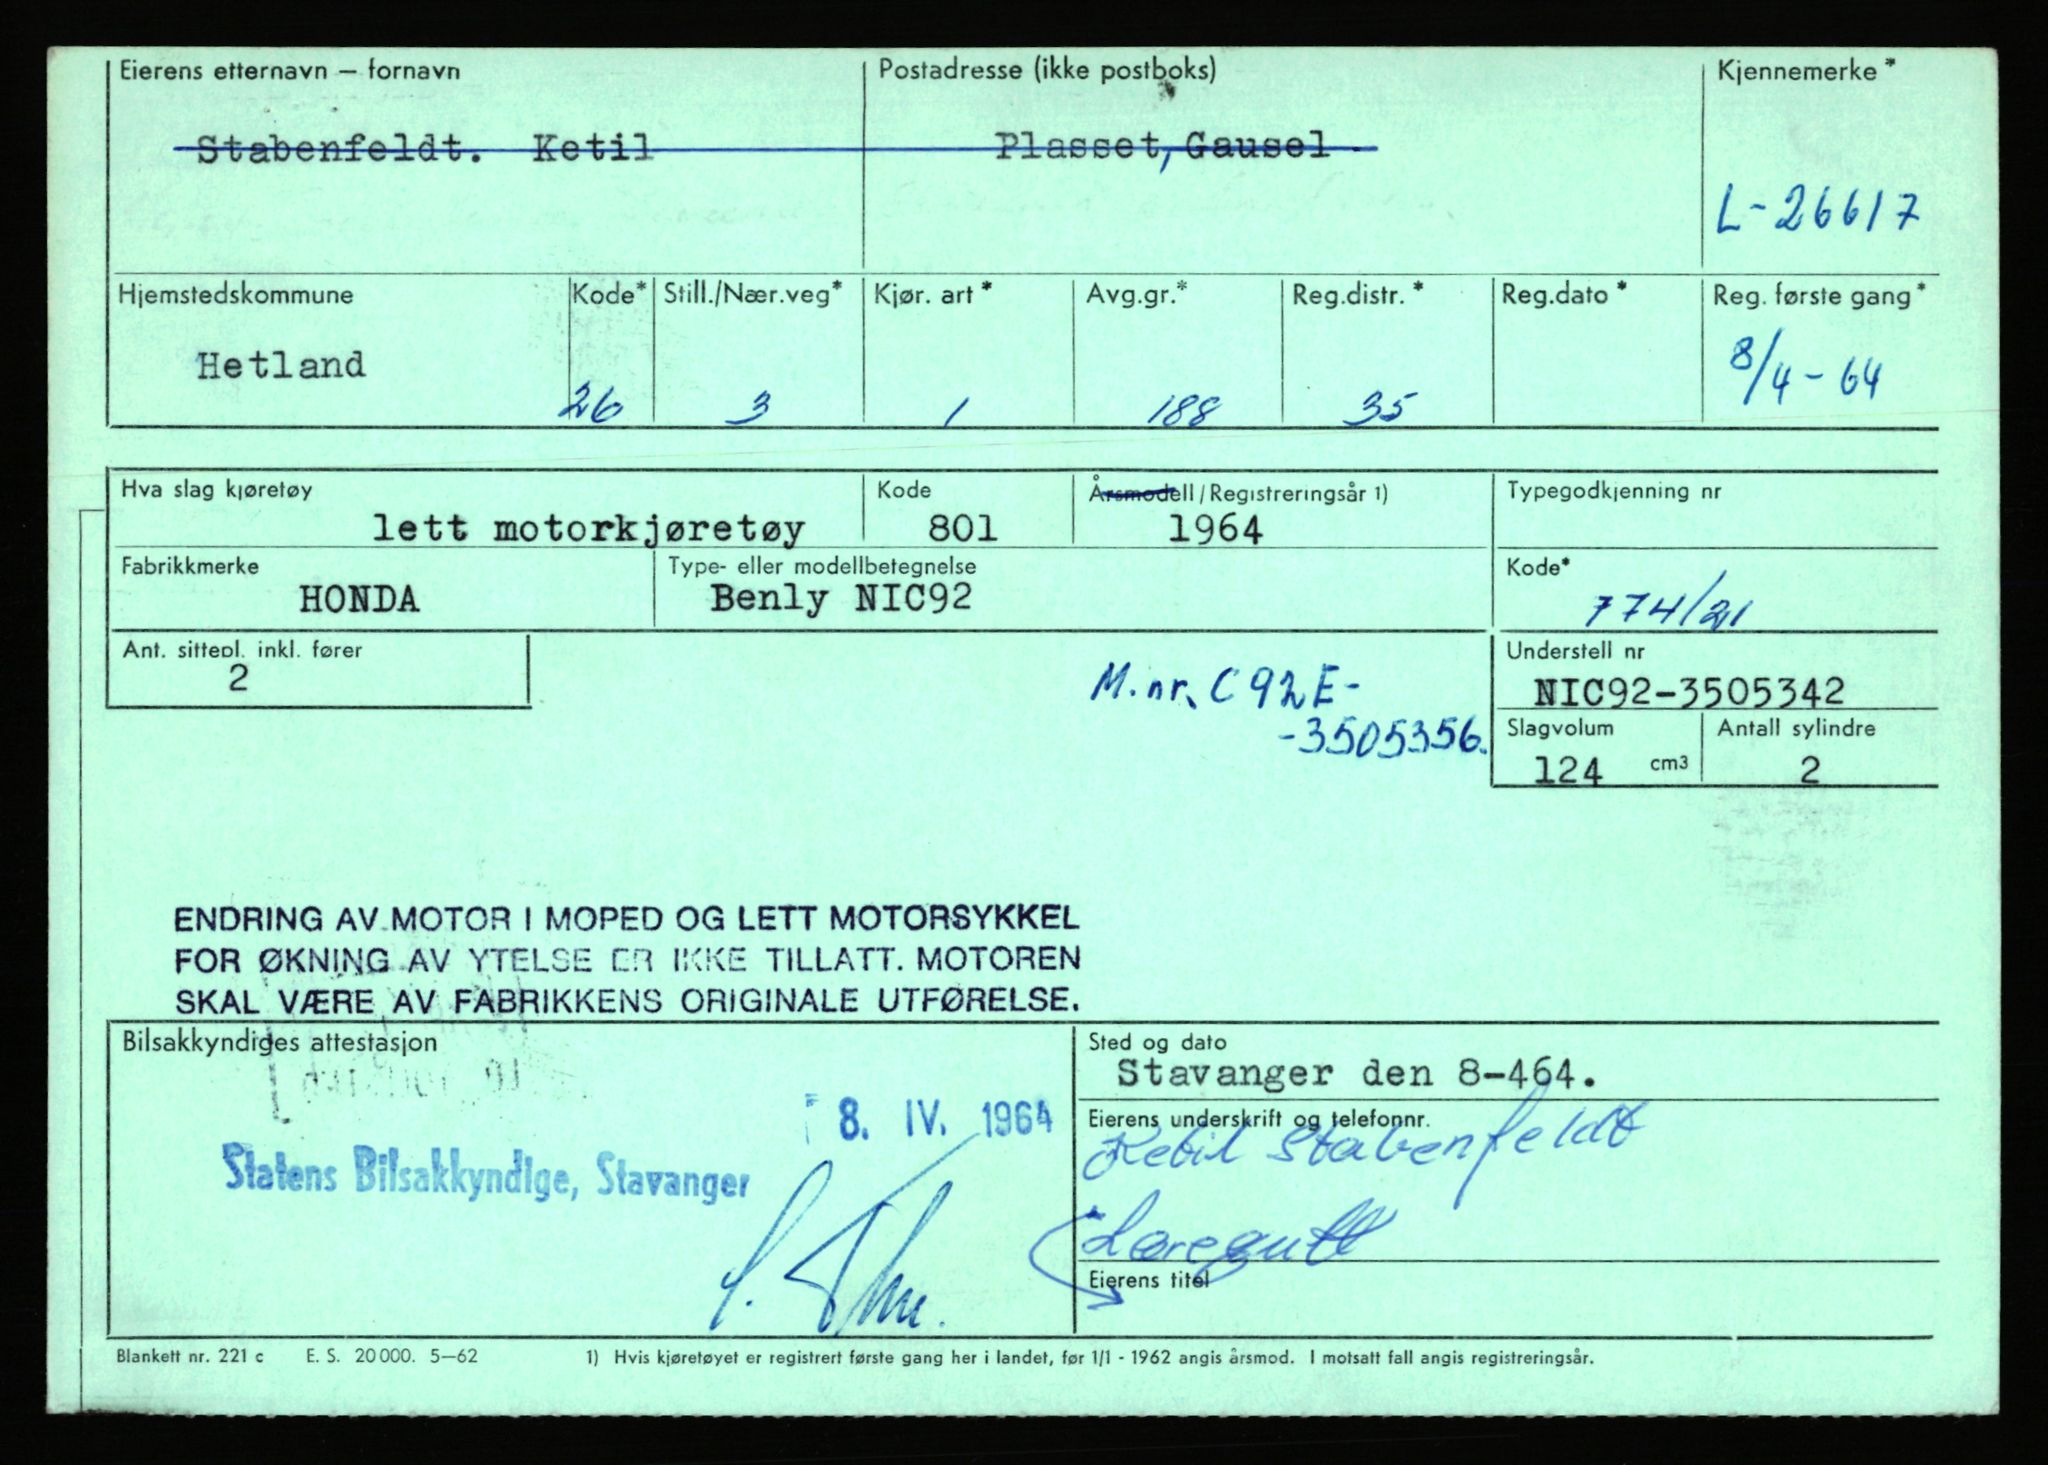 Eierens etternavn – fornavn
Postadresse (ikke postboks)
Kjennemerke*
Stabenfeldt. Ketil
Plasset, Gausel
L-26617
Hjemstedskommune
Kode*
Still./Nær.veg*
Kjør. art*
Avg.gr.*
Reg.distr.*
Reg.dato*
Reg. første gang*
Hetland
26
3
1
188
35
8/4-64
Hva slag kjøretøy
Kode
Årsmodell/Registreringsår 1)
Typegodkjenning nr
lett motorkjøretøy
801
1964
Fabrikkmerke
Type- eller modellbetegnelse
Kode*
HONDA
Benly NIC92
774/21
Ant. sittepl. inkl. fører
Understell nr
2
M.nr. C92E-
NIC92-3505342
-3505356.
Slagvolum
Antall sylindre
124 cm3
2
ENDRING AV MOTOR I MOPED OG LETT MOTORSYKKEL
FOR ØKNING AV YTELSE ER IKKE TILLATT. MOTOREN
SKAL VÆRE AV FABRIKKENS ORIGINALE UTFØRELSE.
Bilsakkyndiges attestasjon
Sted og dato
Stavanger den 8-464.
8. IV. 1964
Eierens underskrift og telefonnr.
Ketil Stabenfeldt
Statens Bilsakkyndige, Stavanger
Læregutt
Eierens titel
Blankett nr. 221 c E. S. 20 000. 5–62
1) Hvis kjøretøyet er registrert første gang her i landet, før 1/1 - 1962 angis årsmod. I motsatt fall angis registreringsår.